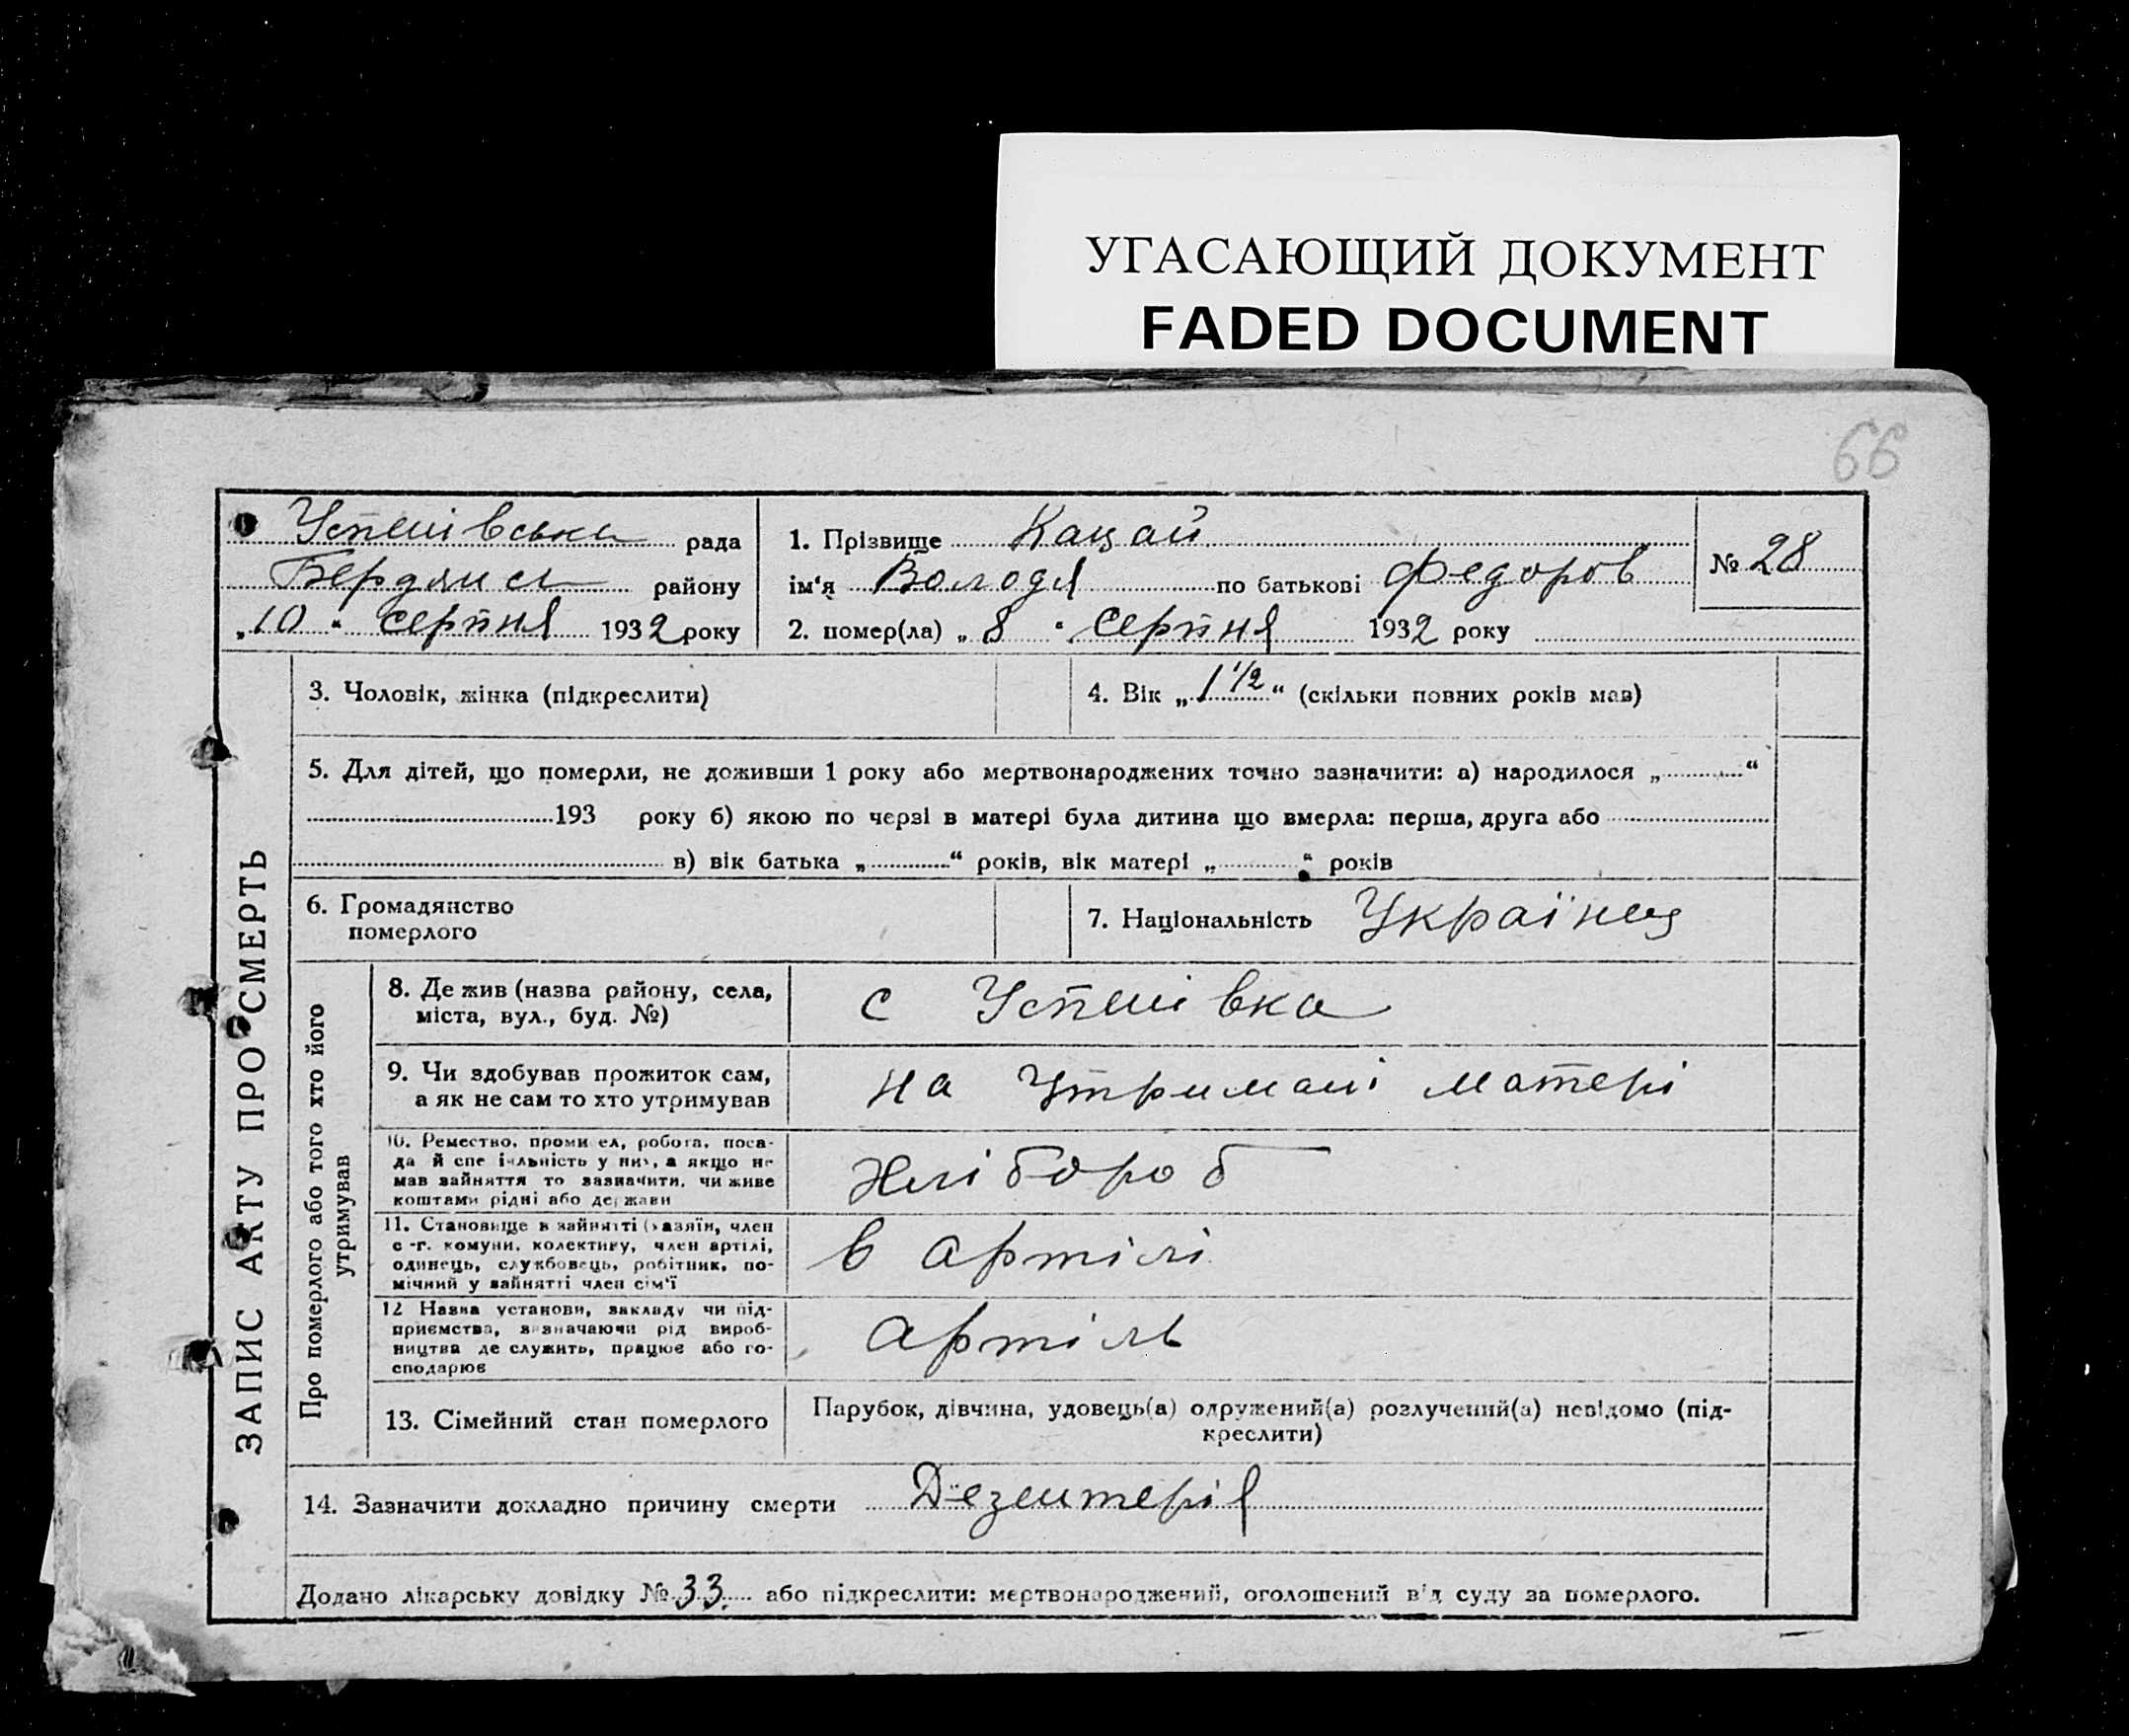 УГАСАЮЩИЙ ДОКУМЕНТ
FADED DOCUMENT
66
Успенівська рада
Бердянськ району
„10" серпня 1932 року
1. Прізвище Кацай
ім'я Володя по батькові Федоров
2. помер(ла) „8" серпня 1932 року
№ 28
ЗАПИС АКТУ ПРО СМЕРТЬ
3. Чоловік, жінка (підкреслити)
4. Вік „1 1/2" (скільки повних років мав)
5. Для дітей, що померли, не доживши 1 року або мертвонароджених точно зазначити: а) народилося „ "
193 року б) якою по черзі в матері була дитина що вмерла: перша, друга або
в) вік батька „ " років, вік матері „ " років
6. Громадянство
померлого
7. Національність Українец
Про померлого або того хто його
утримував
8. Де жив (назва району, села,
міста, вул., буд. №)
с Успенівка
9. Чи здобував прожиток сам,
а як не сам то хто утримував
на утримані матері
10. Ремество, промисел, робота, поса-
да й спеціяльність у них, а якщо не
мав зайняття то зазначити, чи живе
коштами рідні або держави
Хлібороб
11. Становище в зайнятті (хазяїн, член
с.-г. комуни, колективу, член артілі,
одинець, службовець, робітник, по-
мічний у зайнятті член сім'ї
в артілі
12 Назва установи, закладу чи під-
приємства, зазначаючи рід вироб-
ництва де служить, працює або го-
сподарює
артіль
13. Сімейний стан померлого
Парубок, дівчина, удовець(а) одружений(а) розлучений(а) невідомо (під-
креслити)
14. Зазначити докладно причину смерти Дезентерія
Додано лікарську довідку № 33. або підкреслити: мертвонароджений, оголошений від суду за померлого.